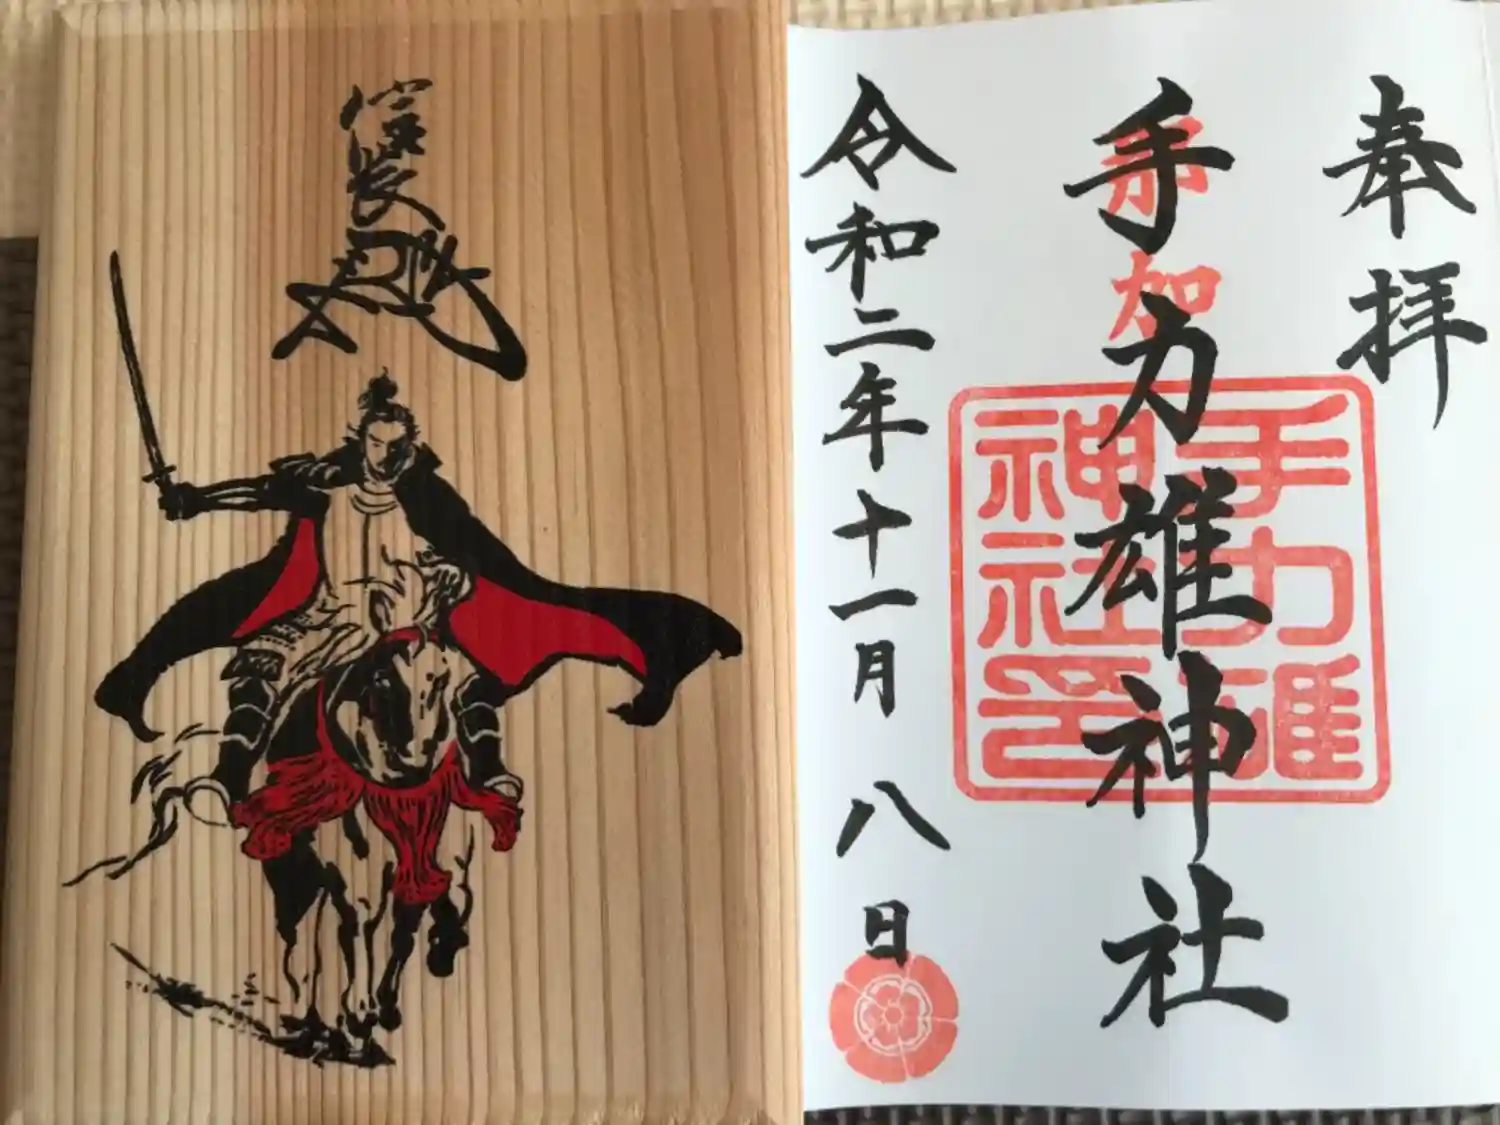 信長
奉拝
那加
手力雄神社
手力雄
神社印
令和二年十一月八日